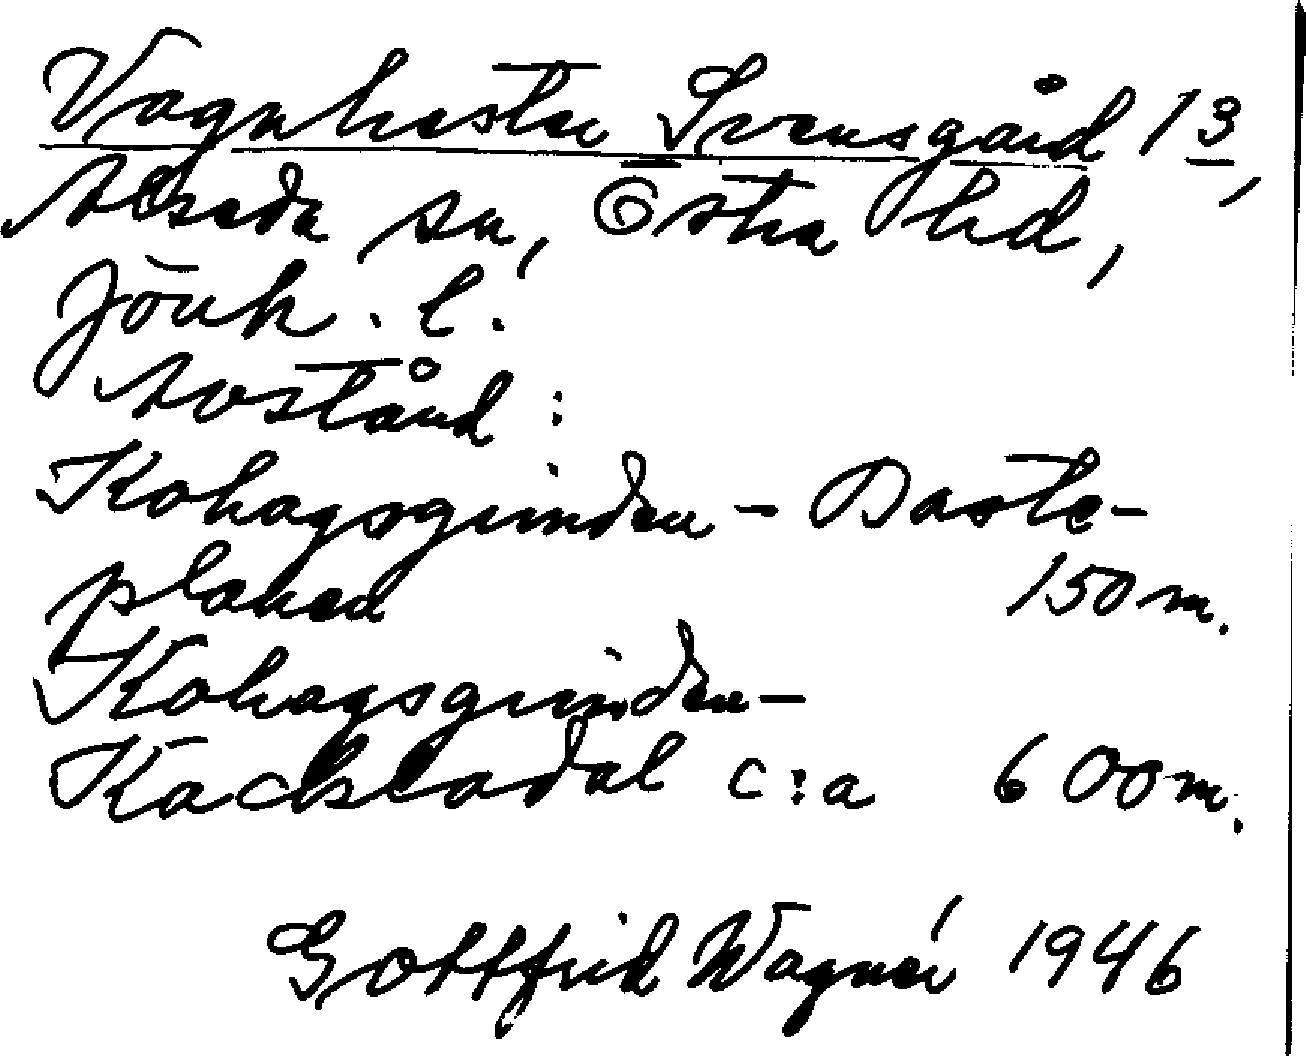 Vagnhester Svensgård 1 3,
Alseda sn, Östra hd,
Jönk. l.
Avstånd :
Kohagsgrinden - Daste-
planen 150 m.
Kohagsgrinden -
Kackladal c:a 600 m.
Gottfrid Wagnér 1946